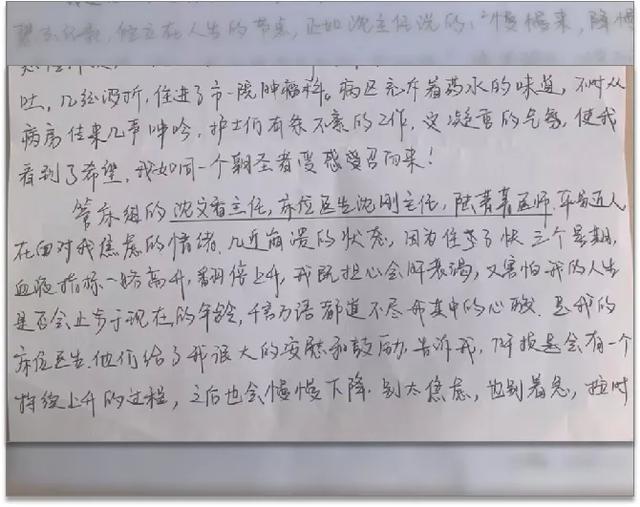 位立在人生的节点，正如沈主任说的，"慢慢来，降慢
吐，几经酒折，住进了市一院肿瘤科。病区充斥着药水的味道，不时从
病房传来几声呻吟，护士们有条不紊的工作，安凝重的气氛，使我
看到了希望，我如同一个朝圣者受感受召而来！
管床组的沈文香主任，床位医生沈刚主任，陈菁菁医师，平易近人
在面对我焦虑的情绪、几近崩溃的状态，因为住了快三个星期，
血液指标一路高升，翻倍上升，我既担心会肝衰竭，又害怕我的人生
是否会止步于现在的年龄，千言万语都道不尽我其中的心酸。是我的
床位医生，他们给了我很大的安慰和鼓励，告诉我，肝损是会有一个
持续上升的过程，之后也会慢慢下降。别太焦虑，也别着急，按时